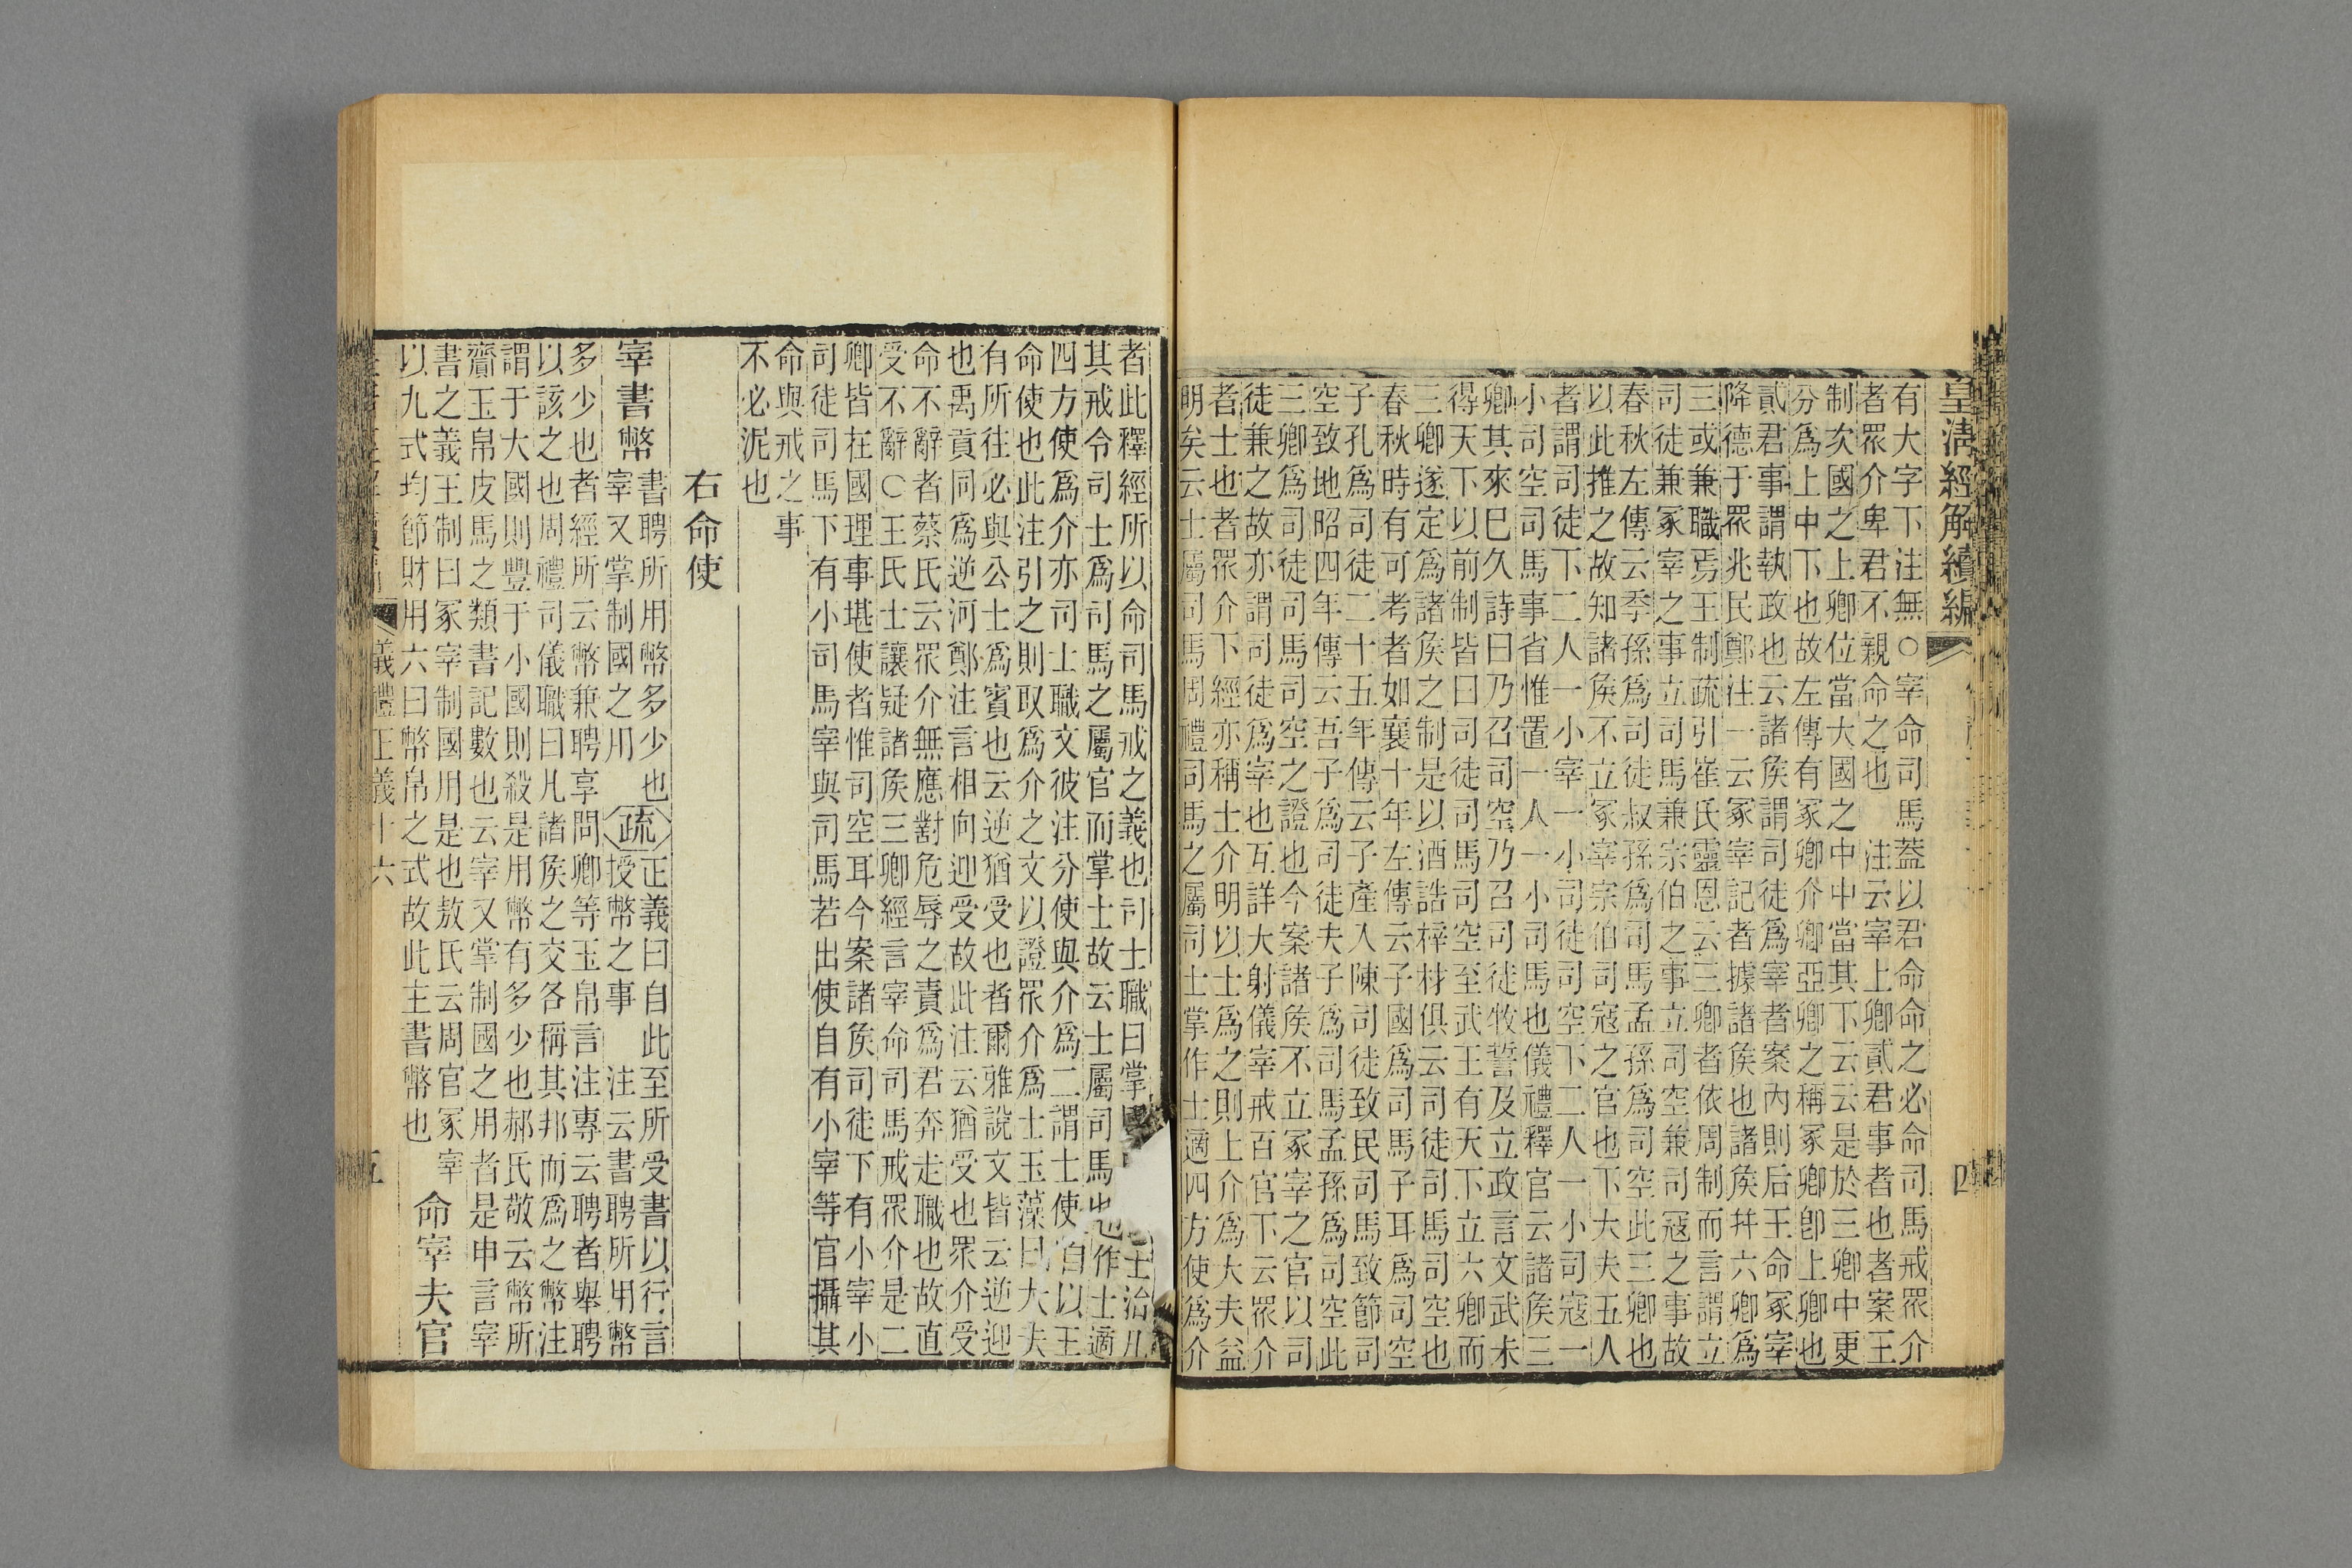 皇清經解續編
四
有大字下注無○宰命司馬葢以君命命之必命司馬戒眾介
者眾介卑君不親命之也　注云宰上卿貳君事者也者案王
制次國之上卿位當大國之中中當其下云云是於三卿中更
分爲上中下也故左傳有冢卿介卿亞卿之稱冢卿卽上卿也
貳君事謂執政也云諸矦謂司徒爲宰者案內則后王命冢宰
降德于眾兆民鄭注一云冢宰記者據諸矦也諸矦幷六卿爲
三或兼職焉王制疏引崔氏靈恩云三卿者依周制而言謂立
司徒兼冢宰之事立司馬兼宗伯之事立司空兼司寇之事故
春秋左傳云季孫爲司徒叔孫爲司馬孟孫爲司空此三卿也
以此推之故知諸矦不立冢宰宗伯司寇之官也下大夫五人
者謂司徒下二人一小宰一小司徒司空下二人一小司寇一
小司空司馬事省惟置一人一小司馬也儀禮釋官云諸矦三
卿其來巳久詩曰乃召司空乃召司徒牧誓及立政言文武未
得天下以前制皆曰司徒司馬司空至武王有天下立六卿而
三卿遂定爲諸矦之制是以酒誥梓材俱云司徒司馬司空也
春秋時有可考者如襄十年左傳云子國爲司馬子耳爲司空
子孔爲司徒二十五年傳云子產入陳司徒致民司馬致節司
空致地昭四年傳云吾子爲司徒夫子爲司馬孟孫爲司空此
三卿爲司徒司馬司空之證也今案諸矦不立冢宰之官以司
徒兼之故亦謂司徒爲宰也互詳大射儀宰戒百官下云眾介
者士也者眾介下經亦稱士介明以士爲之則上介爲大夫益
明矣云士屬司馬周禮司馬之屬司士掌作士適四方使爲介
者此釋經所以命司馬戒之義也司士職曰掌國　士治凡
其戒令司士爲司馬之屬官而掌士故云士屬司馬也作士適
四方使爲介亦司士職文彼注分使與介爲二謂士使自以王
命使也此注引之則取爲介之文以證眾介爲士玉藻曰大夫
有所往必與公士爲賓也云逆猶受也者爾雅說文皆云逆迎
也禹貢同爲逆河鄭注言相向迎受故此注云猶受也眾介受
命不辭者蔡氏云眾介無應對危辱之責爲君奔走職也故直
受不辭○王氏士讓疑諸矦三卿經言宰命司馬戒眾介是二
卿皆在國理事堪使者惟司空耳今案諸矦司徒下有小宰小
司徒司馬下有小司馬宰與司馬若出使自有小宰等官攝其
命與戒之事
不必泥也
右命使
宰書幣書聘所用幣多少也
宰又掌制國之用疏正義曰自此至所受書以行言
授幣之事　注云書聘所用幣
多少也者經所云幣兼聘享問卿等玉帛言注專云聘者舉聘
以該之也周禮司儀職曰凡諸矦之交各稱其邦而爲之幣注
謂于大國則豐于小國則殺是用幣有多少也郝氏敬云幣所
齎玉帛皮馬之類書記數也云宰又掌制國之用者是申言宰
書之義王制曰冢宰制國用是也敖氏云周官冢宰
以九式均節財用六曰幣帛之式故此主書幣也命宰夫官
義禮正義十六
五